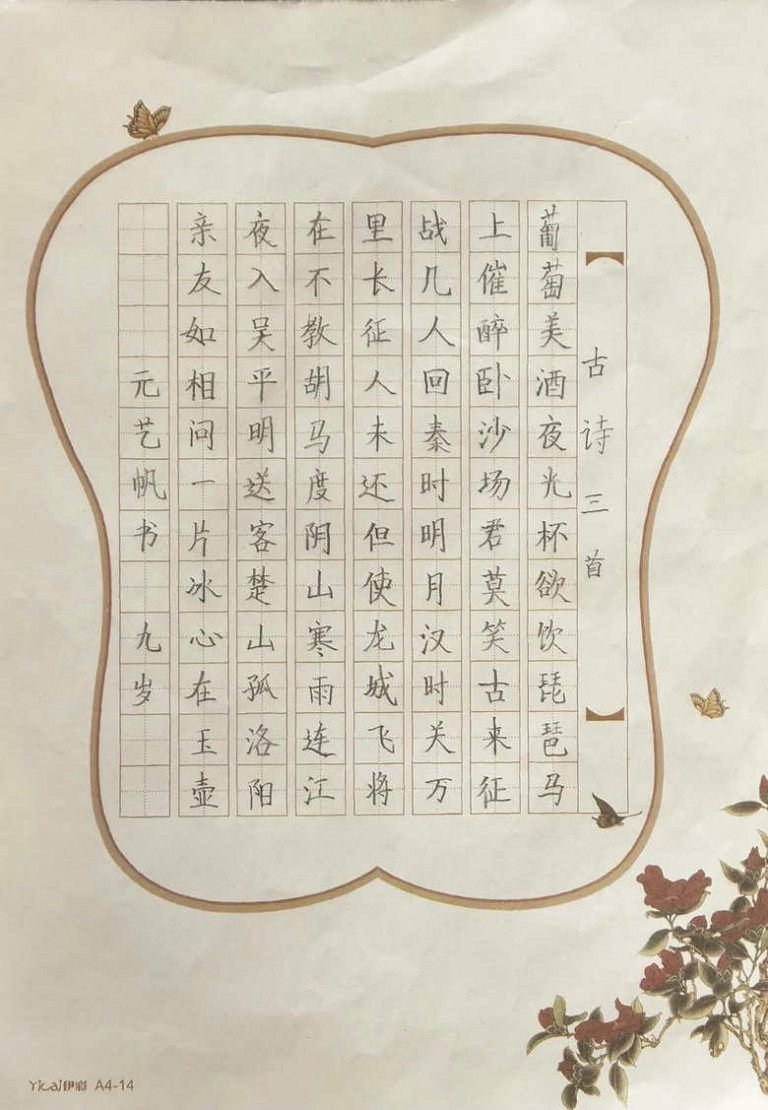 古诗三首
葡萄美酒夜光杯欲饮琵琶马
上催醉卧沙场君莫笑古来征
战几人回秦时明月汉时关万
里长征人未还但使龙城飞将
在不教胡马度阴山寒雨连江
夜入吴平明送客楚山孤洛阳
亲友如相问一片冰心在玉壶
元艺帆书 九岁
Yicai伊彩 A4-14